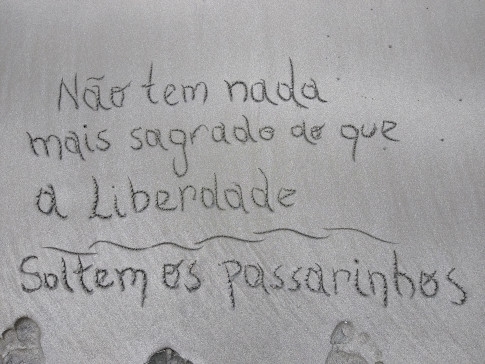 Não tem nada
mais sagrado do que
a Liberdade
Soltem os passarinhos